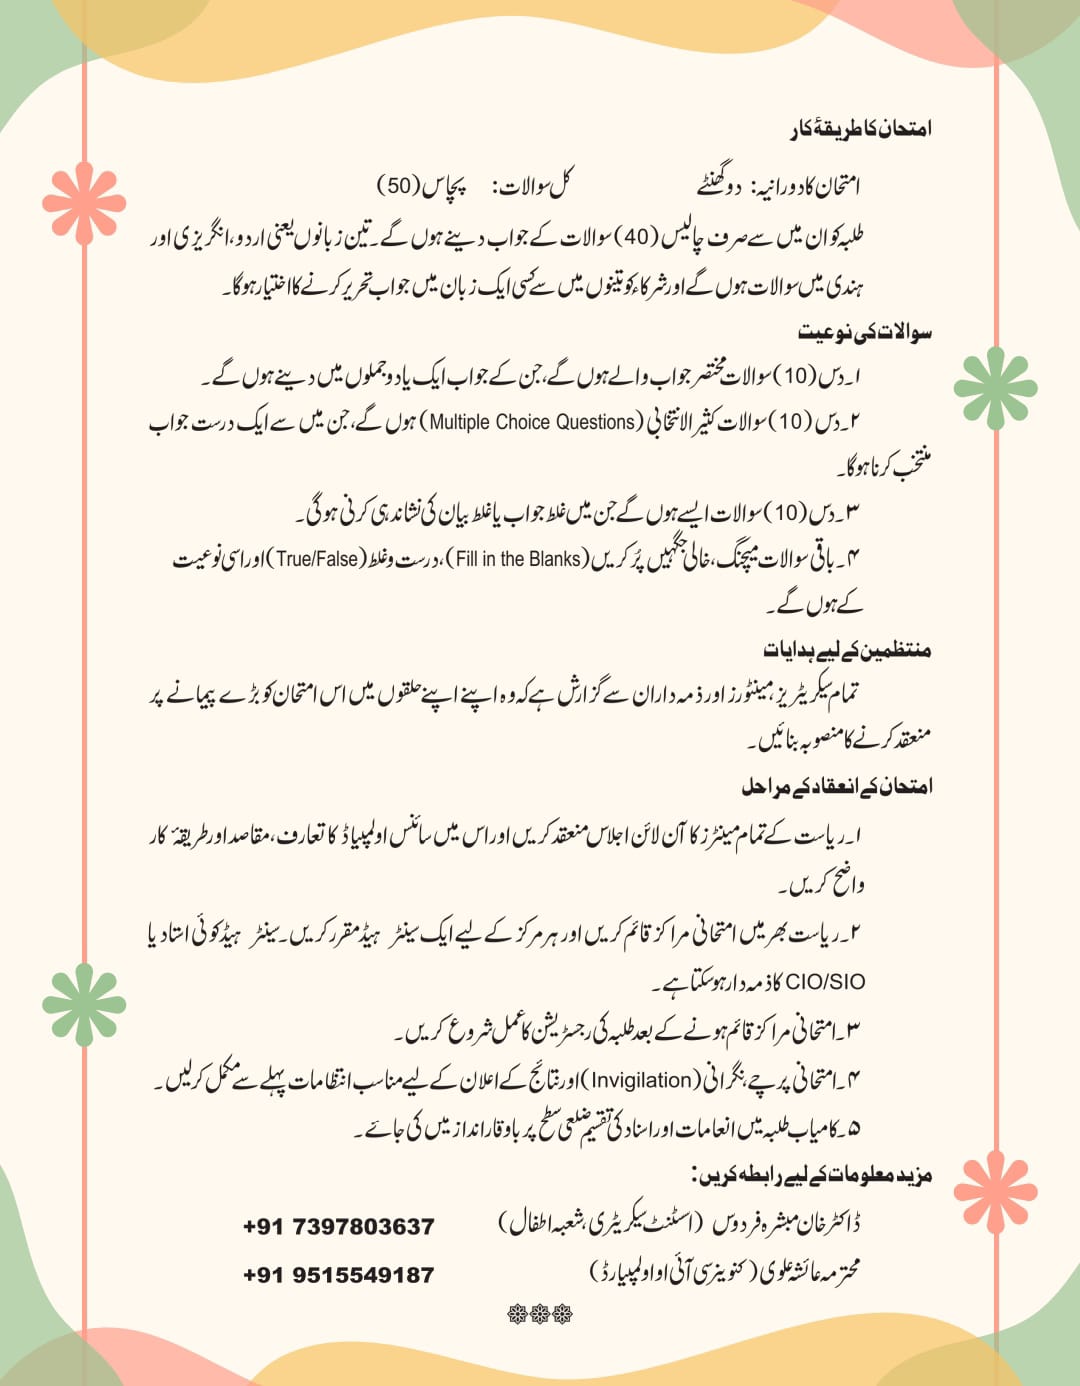 امتحان کا طریقۂ کار
امتحان کا دورانیہ: دو گھنٹے کل سوالات: پچاس (50)
طلبہ کو ان میں سے صرف چالیس (40) سوالات کے جواب دینے ہوں گے۔ تین زبانوں یعنی اردو، انگریزی اور
ہندی میں سوالات ہوں گے اور شرکاء کو تینوں میں سے کسی ایک زبان میں جواب تحریر کرنے کا اختیار ہوگا۔
سوالات کی نوعیت
۱۔ دس (10) سوالات مختصر جواب والے ہوں گے، جن کے جواب ایک یا دو جملوں میں دینے ہوں گے۔
۲۔ دس (10) سوالات کثیر الانتخابی (Multiple Choice Questions) ہوں گے، جن میں سے ایک درست جواب
منتخب کرنا ہوگا۔
۳۔ دس (10) سوالات ایسے ہوں گے جن میں غلط جواب یا غلط بیان کی نشاندہی کرنی ہوگی۔
۴۔ باقی سوالات میچنگ، خالی جگہیں پُر کریں (Fill in the Blanks)، درست و غلط (True/False) اور اسی نوعیت
کے ہوں گے۔
منتظمین کے لیے ہدایات
تمام سیکریٹریز، مینٹورز اور ذمہ داران سے گزارش ہے کہ وہ اپنے اپنے حلقوں میں اس امتحان کو بڑے پیمانے پر
منعقد کرنے کا منصوبہ بنائیں۔
امتحان کے انعقاد کے مراحل
۱۔ ریاست کے تمام مینٹرز کا آن لائن اجلاس منعقد کریں اور اس میں سائنس اولمپیاڈ کا تعارف، مقاصد اور طریقۂ کار
واضح کریں۔
۲۔ ریاست بھر میں امتحانی مراکز قائم کریں اور ہر مرکز کے لیے ایک سینٹر ہیڈ مقرر کریں۔ سینٹر ہیڈ کوئی استاد یا
CIO/SIO کا ذمہ دار ہوسکتا ہے۔
۳۔ امتحانی مراکز قائم ہونے کے بعد طلبہ کی رجسٹریشن کا عمل شروع کریں۔
۴۔ امتحانی پرچے، نگرانی (Invigilation) اور نتائج کے اعلان کے لیے مناسب انتظامات پہلے سے مکمل کرلیں۔
۵۔ کامیاب طلبہ میں انعامات اور اسناد کی تقسیم ضلعی سطح پر باوقار انداز میں کی جائے۔
مزید معلومات کے لیے رابطہ کریں:
ڈاکٹر خان مبشرہ فردوس (اسٹنٹ سیکریٹری، شعبہ اطفال) +91 7397803637
محترمہ عائشہ علوی (کنوینر سی آئی او اولمپیارڈ) +91 9515549187